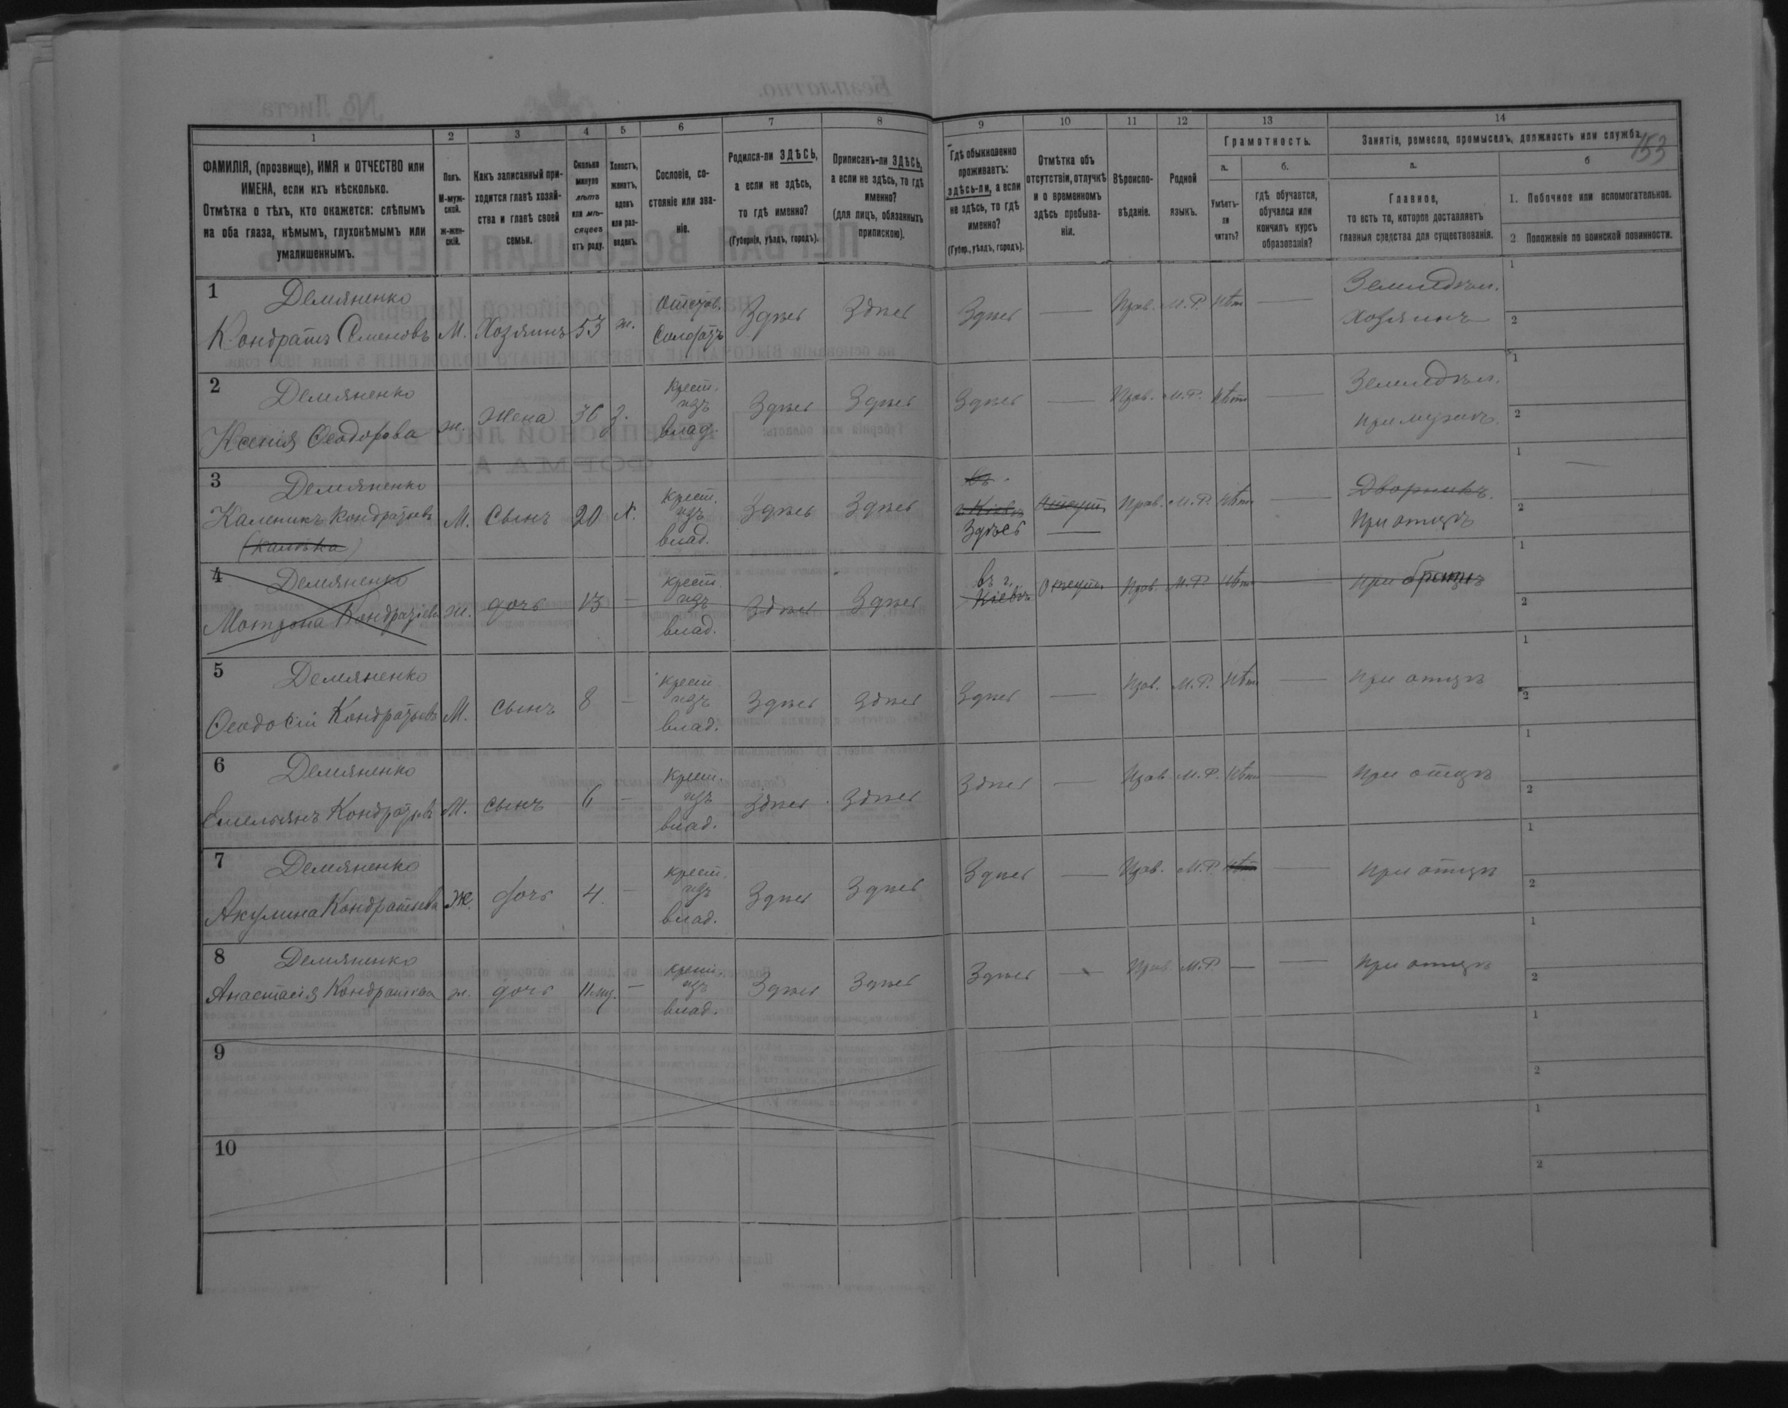 153
1 2 3 4 5 6 7 8 9 10 11 12 13 14
ФАМИЛІЯ, (прозвище), ИМЯ и ОТЧЕСТВО или ИМЕНА, если ихъ нѣсколько.
Отмѣтка о тѣхъ, кто окажется: слѣпымъ на оба глаза, нѣмымъ, глухонѣмымъ или умалишеннымъ.
Полъ. М-мужской. Ж-женскій.
Какъ записанный приходится главѣ хозяйства и главѣ своей семьи.
Сколько минуло лѣтъ или мѣсяцевъ отъ роду.
Холостъ, женатъ, вдовъ или разведенъ.
Сословіе, состояніе или званіе.
Родился-ли ЗДѢСЬ, а если не здѣсь, то гдѣ именно?
(Губернія, уѣздъ, городъ).
Приписанъ-ли ЗДѢСЬ, а если не здѣсь, то гдѣ именно?
(для лицъ, обязанныхъ припискою).
Гдѣ обыкновенно проживаетъ: здѣсь-ли, а если не здѣсь, то гдѣ именно?
(Губер., уѣздъ, городъ).
Отмѣтка объ отсутствіи, отлучкѣ и о временномъ здѣсь пребываніи.
Вѣроисповѣданіе.
Родной языкъ.
Грамотность.
а. Умѣетъ-ли читать?
б. гдѣ обучается, обучался или кончилъ курсъ образованія?
Занятія, ремесло, промыселъ, должность или служба.
а. Главное, то есть то, которое доставляетъ главныя средства для существованія.
б
1. Побочное или вспомогательное.
2 Положеніе по воинской повинности.
1 Демяненко
Кондратъ Семеновъ М. Хозяинъ 53 ж. Отстав. Солдатъ Здѣсь Здѣсь Здѣсь — Прав. М.Р. Нѣтъ — Земледѣл. хозяинъ 1 2
2 Демяненко
Ксенія Ѳеодорова ж. жена 36 з. крест. изъ влад. Здѣсь Здѣсь Здѣсь — Прав. М.Р. Нѣтъ — Земледѣл. при мужѣ. 1 2
3 Демяненко
Каленикъ Кондратьевъ М. сынъ 20 х. крест. изъ влад. Здѣсь Здѣсь Здѣсь — Прав. М.Р. Нѣтъ — Дворникъ. При отцѣ 1 2
4 Демяненко
Матрона Кондратіева ж. дочь 13 — крест. изъ влад. Здѣсь Здѣсь въ г. Кіевѣ Отсут. Прав. М.Р. Нѣтъ — при 1 2
5 Демяненко
Ѳеодосій Кондратьевъ М. сынъ 8 — крест. изъ влад. Здѣсь Здѣсь Здѣсь — Прав. М.Р. Нѣтъ — при отцѣ 1 2
6 Демяненко
Емельянъ Кондратьевъ М. сынъ 6 — крест. изъ влад. Здѣсь Здѣсь Здѣсь — Прав. М.Р. Нѣтъ — при отцѣ 1 2
7 Демяненко
Акулина Кондратьева Ж. дочь 4 — крест. изъ влад. Здѣсь Здѣсь Здѣсь — Прав. М.Р. Нѣтъ — при отцѣ 1 2
8 Демяненко
Анастасія Кондратьева ж. дочь 11 мц. — крест. изъ влад. Здѣсь Здѣсь Здѣсь — Прав. М.Р. — — при отцѣ 1 2
9 1 2
10 1 2